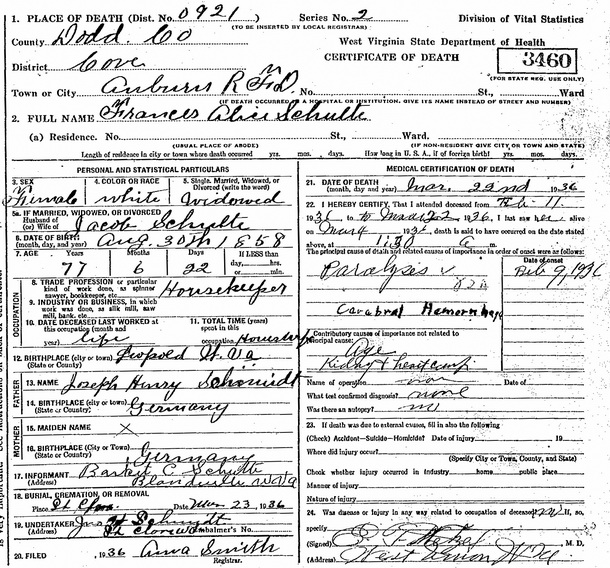 1. PLACE OF DEATH (Dist. No. 0921 Series No. 2 Division of Vital Statistics
(TO BE INSERTED BY LOCAL REGISTRAR)
County Dodd. Co West Virginia State Department of Health
District Cove CERTIFICATE OF DEATH 3460
(FOR STATE REG. USE ONLY)
Town or City Auburn R F D. No. St., Ward
(IF DEATH OCCURRED IN A HOSPITAL OR INSTITUTION, GIVE ITS NAME INSTEAD OF STREET AND NUMBER)
2. FULL NAME Frances Alice Schulte
(a) Residence. No. St., Ward.
(USUAL PLACE OF ABODE) (IF NON-RESIDENT GIVE CITY OR TOWN AND STATE)
Length of residence in city or town where death occurred yrs. mos. days. How long in U. S. A., if of foreign birth? yrs. mos. days.
PERSONAL AND STATISTICAL PARTICULARS
3. SEX 4. COLOR OR RACE 5. Single, Married, Widowed, or Divorced (write the word)
Female white Widowed
5a. IF MARRIED, WIDOWED, OR DIVORCED
Husband of
(or) Wife of Jacob Schulte
6. DATE OF BIRTH
(month, day, and year) Aug. 30th 1858
7. AGE Years Months Days If LESS than
77 6 22 day, hrs.
or min.
OCCUPATION
8. TRADE, PROFESSION or particular
kind of work done, as spinner,
sawyer, bookkeeper, etc. Housekeeper
9. INDUSTRY OR BUSINESS, in which
work was done, as silk mill, saw
mill, bank, etc.
10. DATE DECEASED LAST WORKED at
this occupation (month and
year) life
11. TOTAL TIME (YEARS)
spent in this
occupation
12. BIRTHPLACE (city or town) Leopold W. Va
(State or Country)
FATHER
13. NAME Joseph Henry Schmidt
14. BIRTHPLACE (city or town)
(State or Country) Germany
MOTHER
15. MAIDEN NAME X
16. BIRTHPLACE (City or Town)
(State or Country) Germany
17. INFORMANT C Schulte
(Address) Blandville W Va
18. BURIAL, CREMATION, OR REMOVAL
Place Date Mar 23, 1936
19. UNDERTAKER Schmidt
(Address) Embalmer's No.
20. FILED , 1936 Anna Smith
Registrar.
MEDICAL CERTIFICATION OF DEATH
21. DATE OF DEATH
(month, day, and year) Mar. 22nd 1936
22. I HEREBY CERTIFY, That I attended deceased from Feb. 11.
1936 to 1936. I last saw her alive
on death is said to have occurred on the date stated
above, at 1:30 a m.
The principal cause of death and related causes of importance in order of onset were as follows:
Date of onset
Paralysis Feb 9, 1936
82a
Cerebral Hemorrhage
Contributory causes of importance not related to
principal cause:
Age
Kidney +
Name of operation Date of
What test confirmed diagnosis? none
Was there an autopsy? no
23. If death was due to external causes, fill in also the following
(Check) Accident—Suicide—Homicide? Date of injury 19
Where did injury occur?
(Specify City or Town, County, and State)
Check whether injury occurred in Industry home public place
Manner of injury
Nature of injury
24. Was disease or injury in any way related to occupation of deceased? no If so,
specify
(Signed) M. D.
(Address) West Union W Va